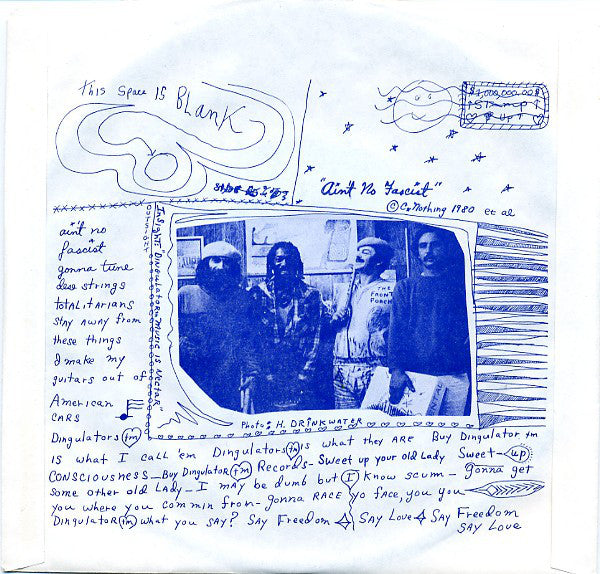 This Space IS BLANK
$1,000,000.00$
"Ain't No Fascist"
© Co Nothing 1980 et al
ain't no
fascist
gonna tune
dese strings
totALitARIANS
stay away from
these things
I make my
guitars out of
American
CARS
InSight Dingulator Music is Nectar"
OUTSIGHT
THE
FRONT
PORCH
Photo: H. DRINKWATER
Dingulators tm is what they ARE Buy Dingulator tm
IS what I call 'em Dingulators tm
CONSCIOUSNESS - Buy Dingulator tm Records - Sweet up your Old Lady Sweet - up
some other old Lady - I may be dumb but I know scum - gonna get
you where you commin from - gonna RACE yo face, you you
Dingulator tm what you SAY? SAY Freedom SAY Love SAY Freedom
SAY Love